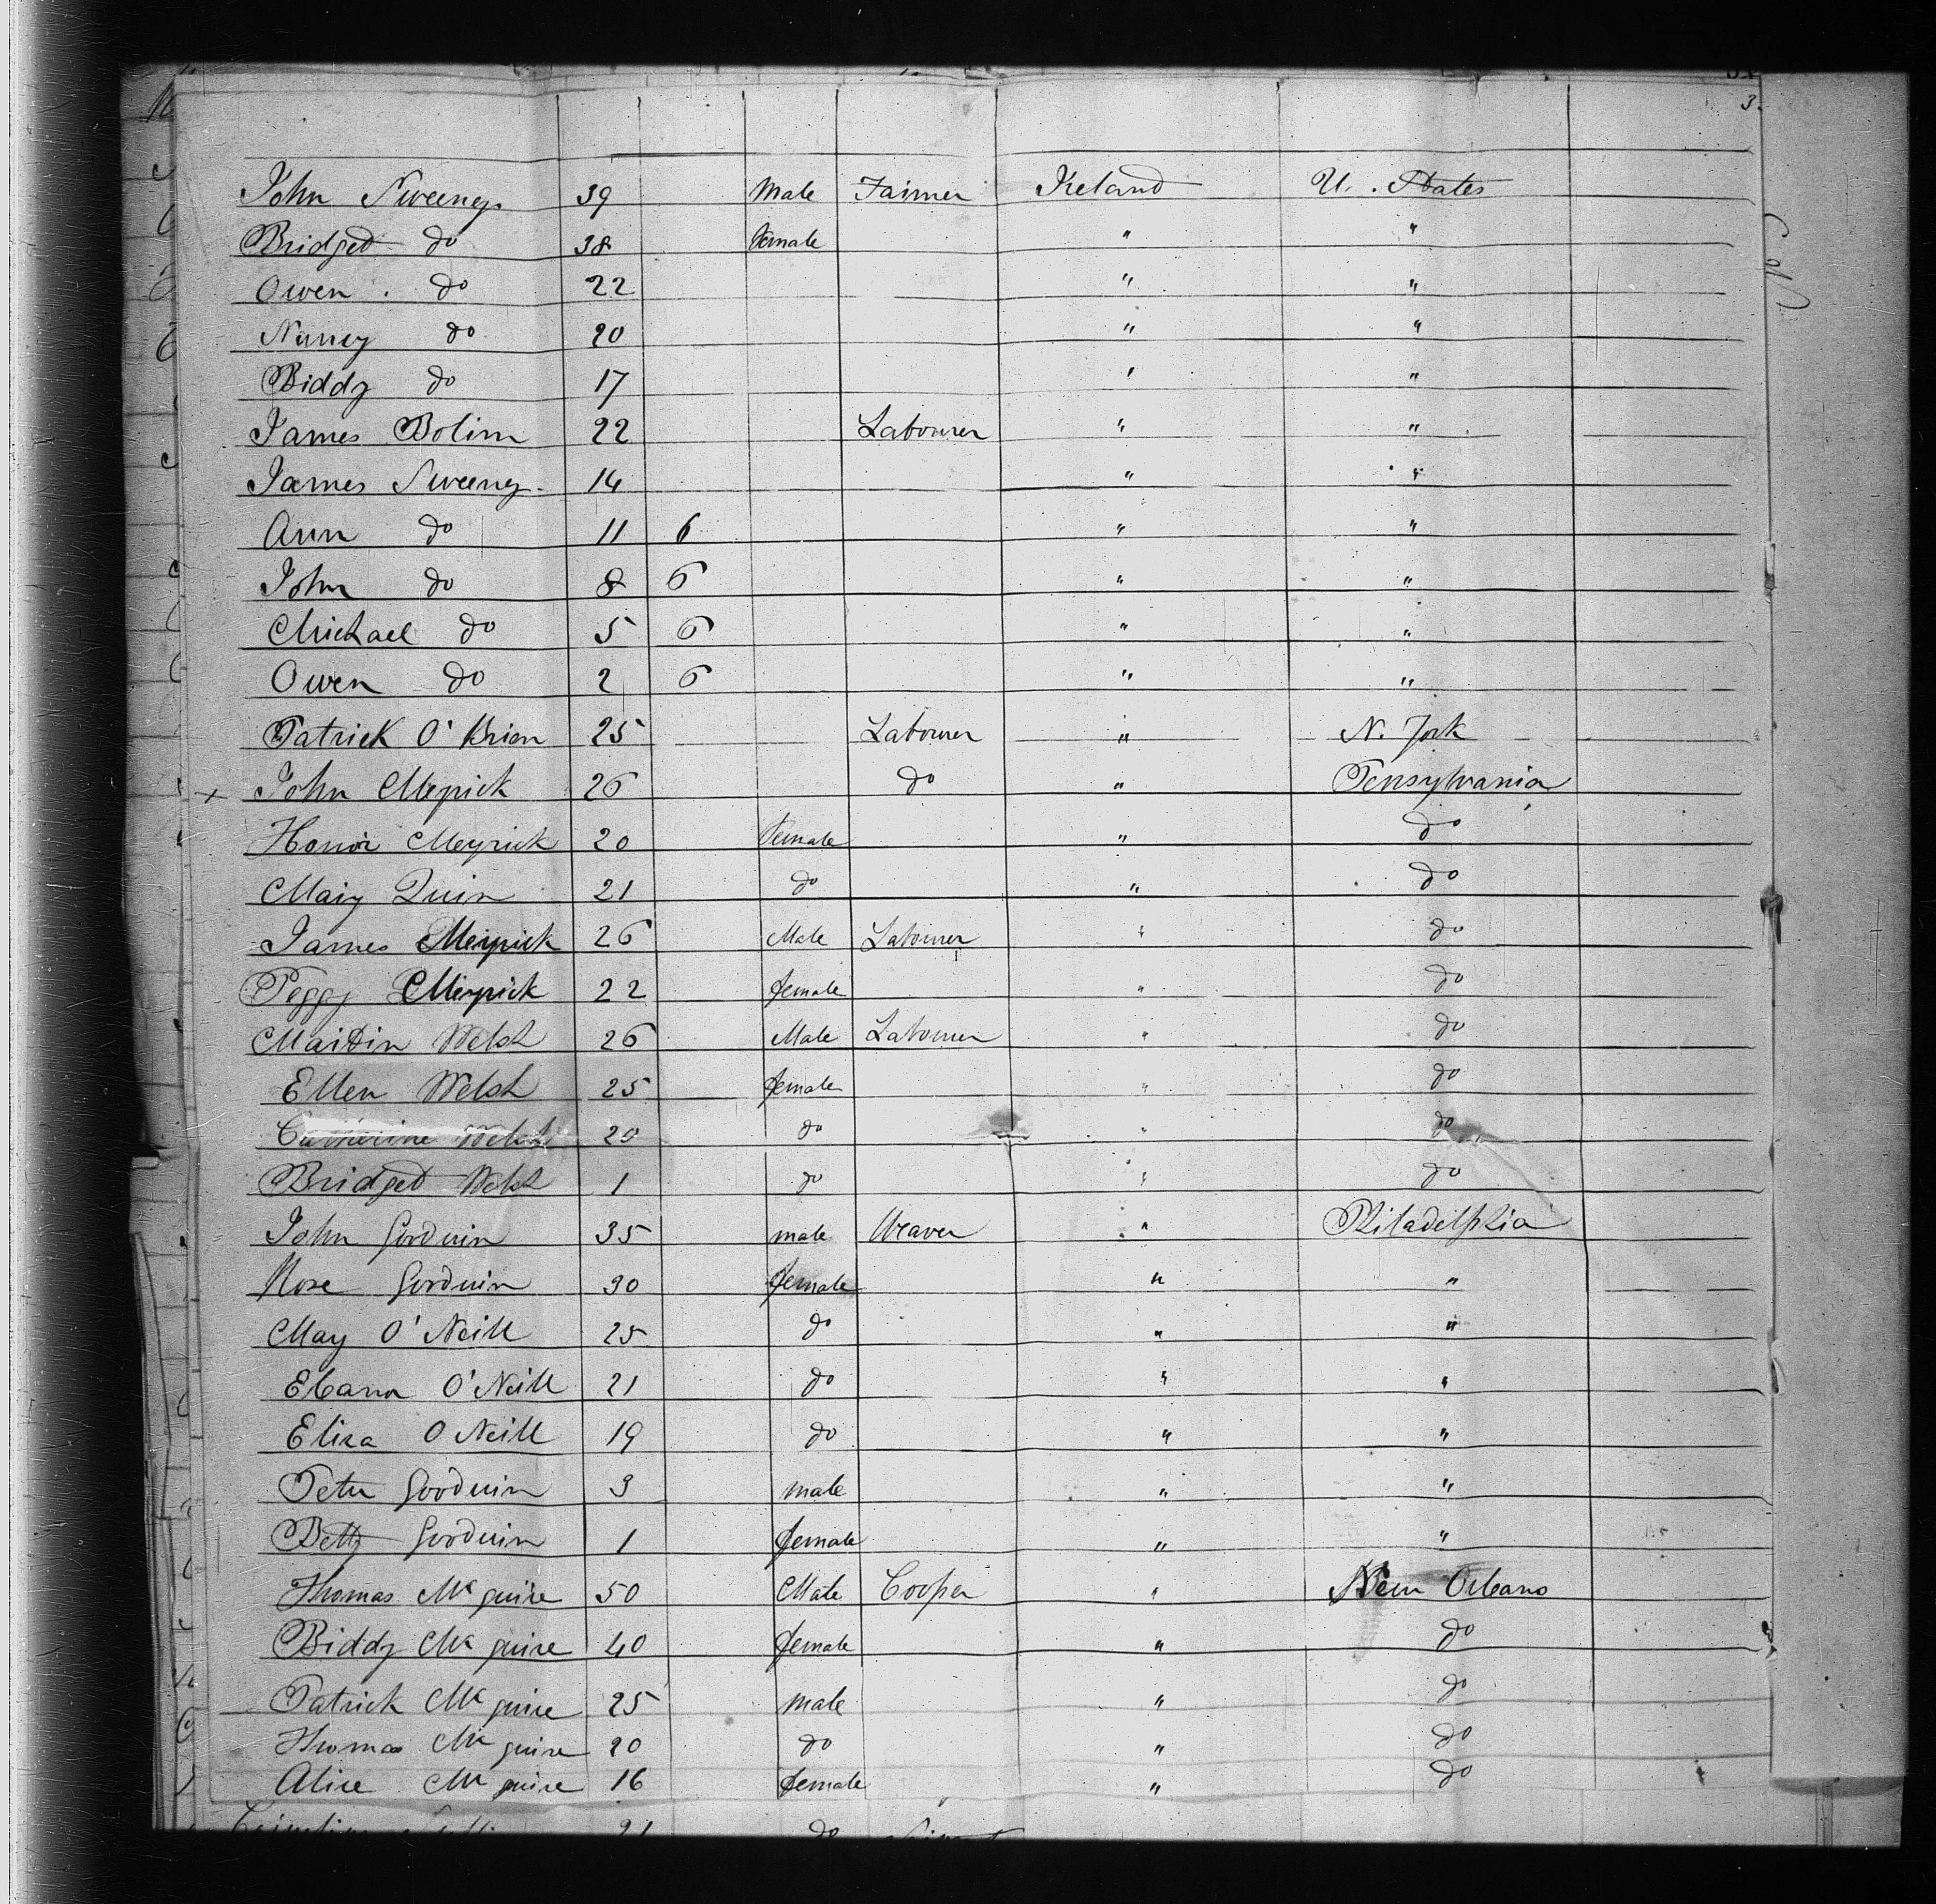 3.
John Sweeney 39 Male Farmer Ireland U. States
Bridget do 38 female " "
Owen . do 22 " "
Nancy do 20 " "
Biddy do 17 " "
James Bolim 22 Labourer " "
James Sweeny 14 " "
Ann do 11 6 " "
John do 8 6 " "
Michael do 5 6 " "
Owen do 2 6 " "
Patrick O'Brien 25 Labourer " N. York
x John Meyrick 26 do " Pensylvania
Honor Meyrick 20 female " do
Mary Quin 21 do " do
James Meyrick 26 Male Labourer " do
Peggy Meyrick 22 female " do
Martin Welsh 26 Male Labourer " do
Ellen Welsh 25 female " do
Catherine Welsh 20 do " do
Bridget Welsh 1 do " do
John Goodwin 35 male Weaver " Philadelphia
Rose Goodwin 30 female " "
May O'Neill 25 do " "
Eleanor O'Neill 21 do " "
Eliza O Neill 19 do " "
Peter Goodwin 3 male " "
Betty Goodwin 1 female " "
Thomas Mc guire 50 Male Cooper " New Orleans
Biddy Mc guire 40 female " do
Patrick Mc guire 25 male " do
Thomas Mc guire 20 do " do
Alice Mc guire 16 female " do
21 do